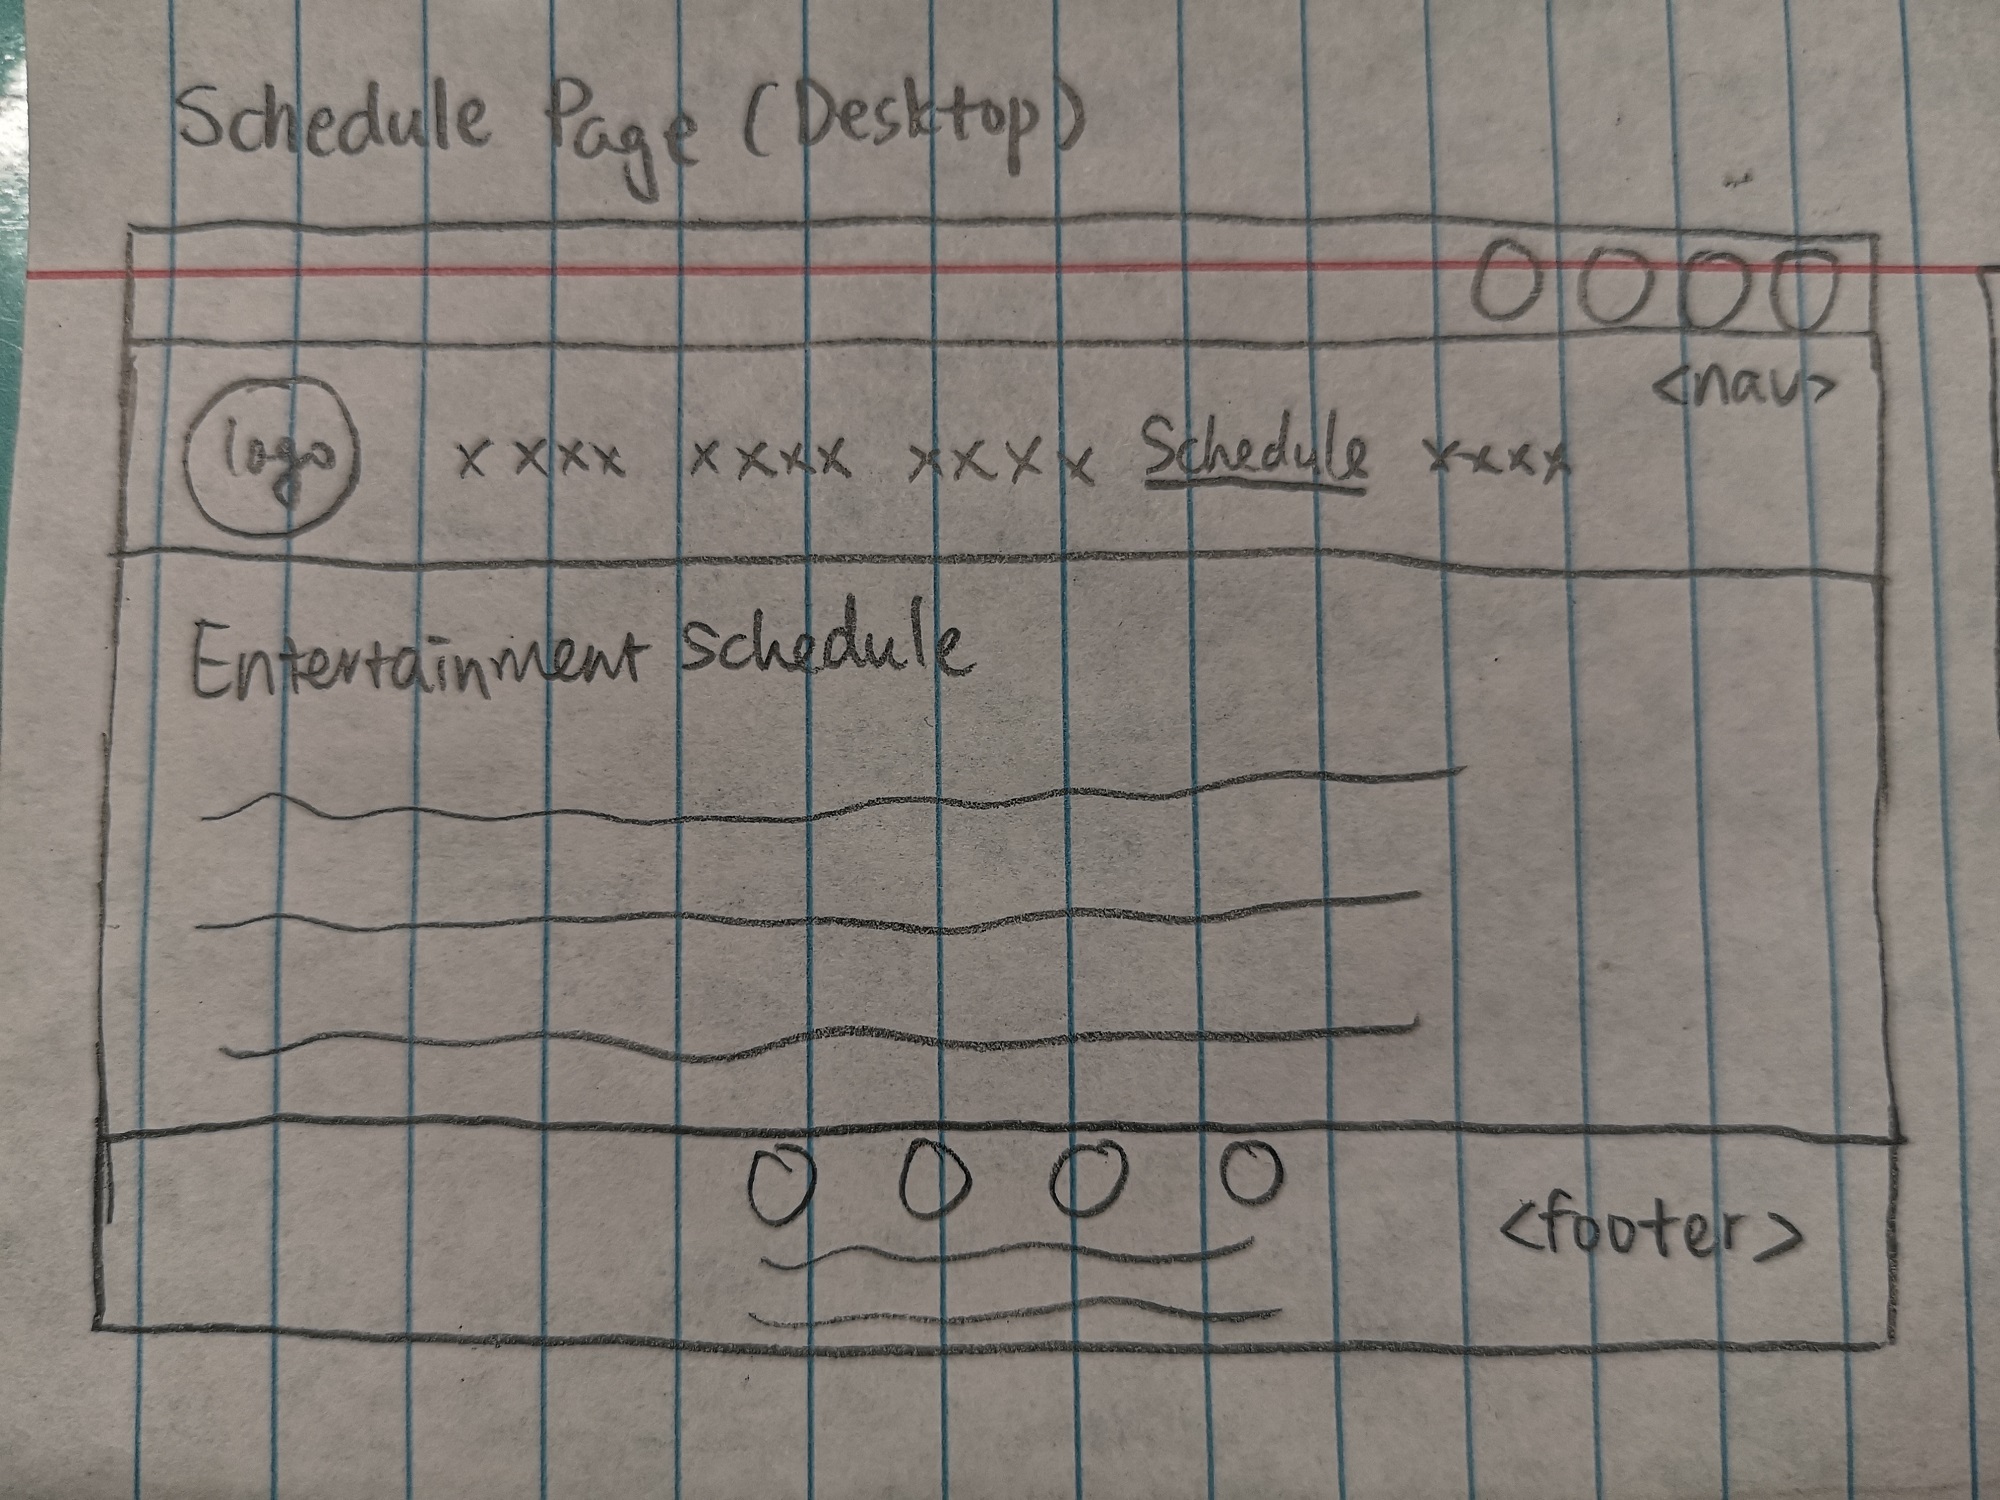 Schedule Page (Desktop)
<nav>
logo xxxx xxxx xxxx Schedule xxxx
Entertainment schedule
<footer>